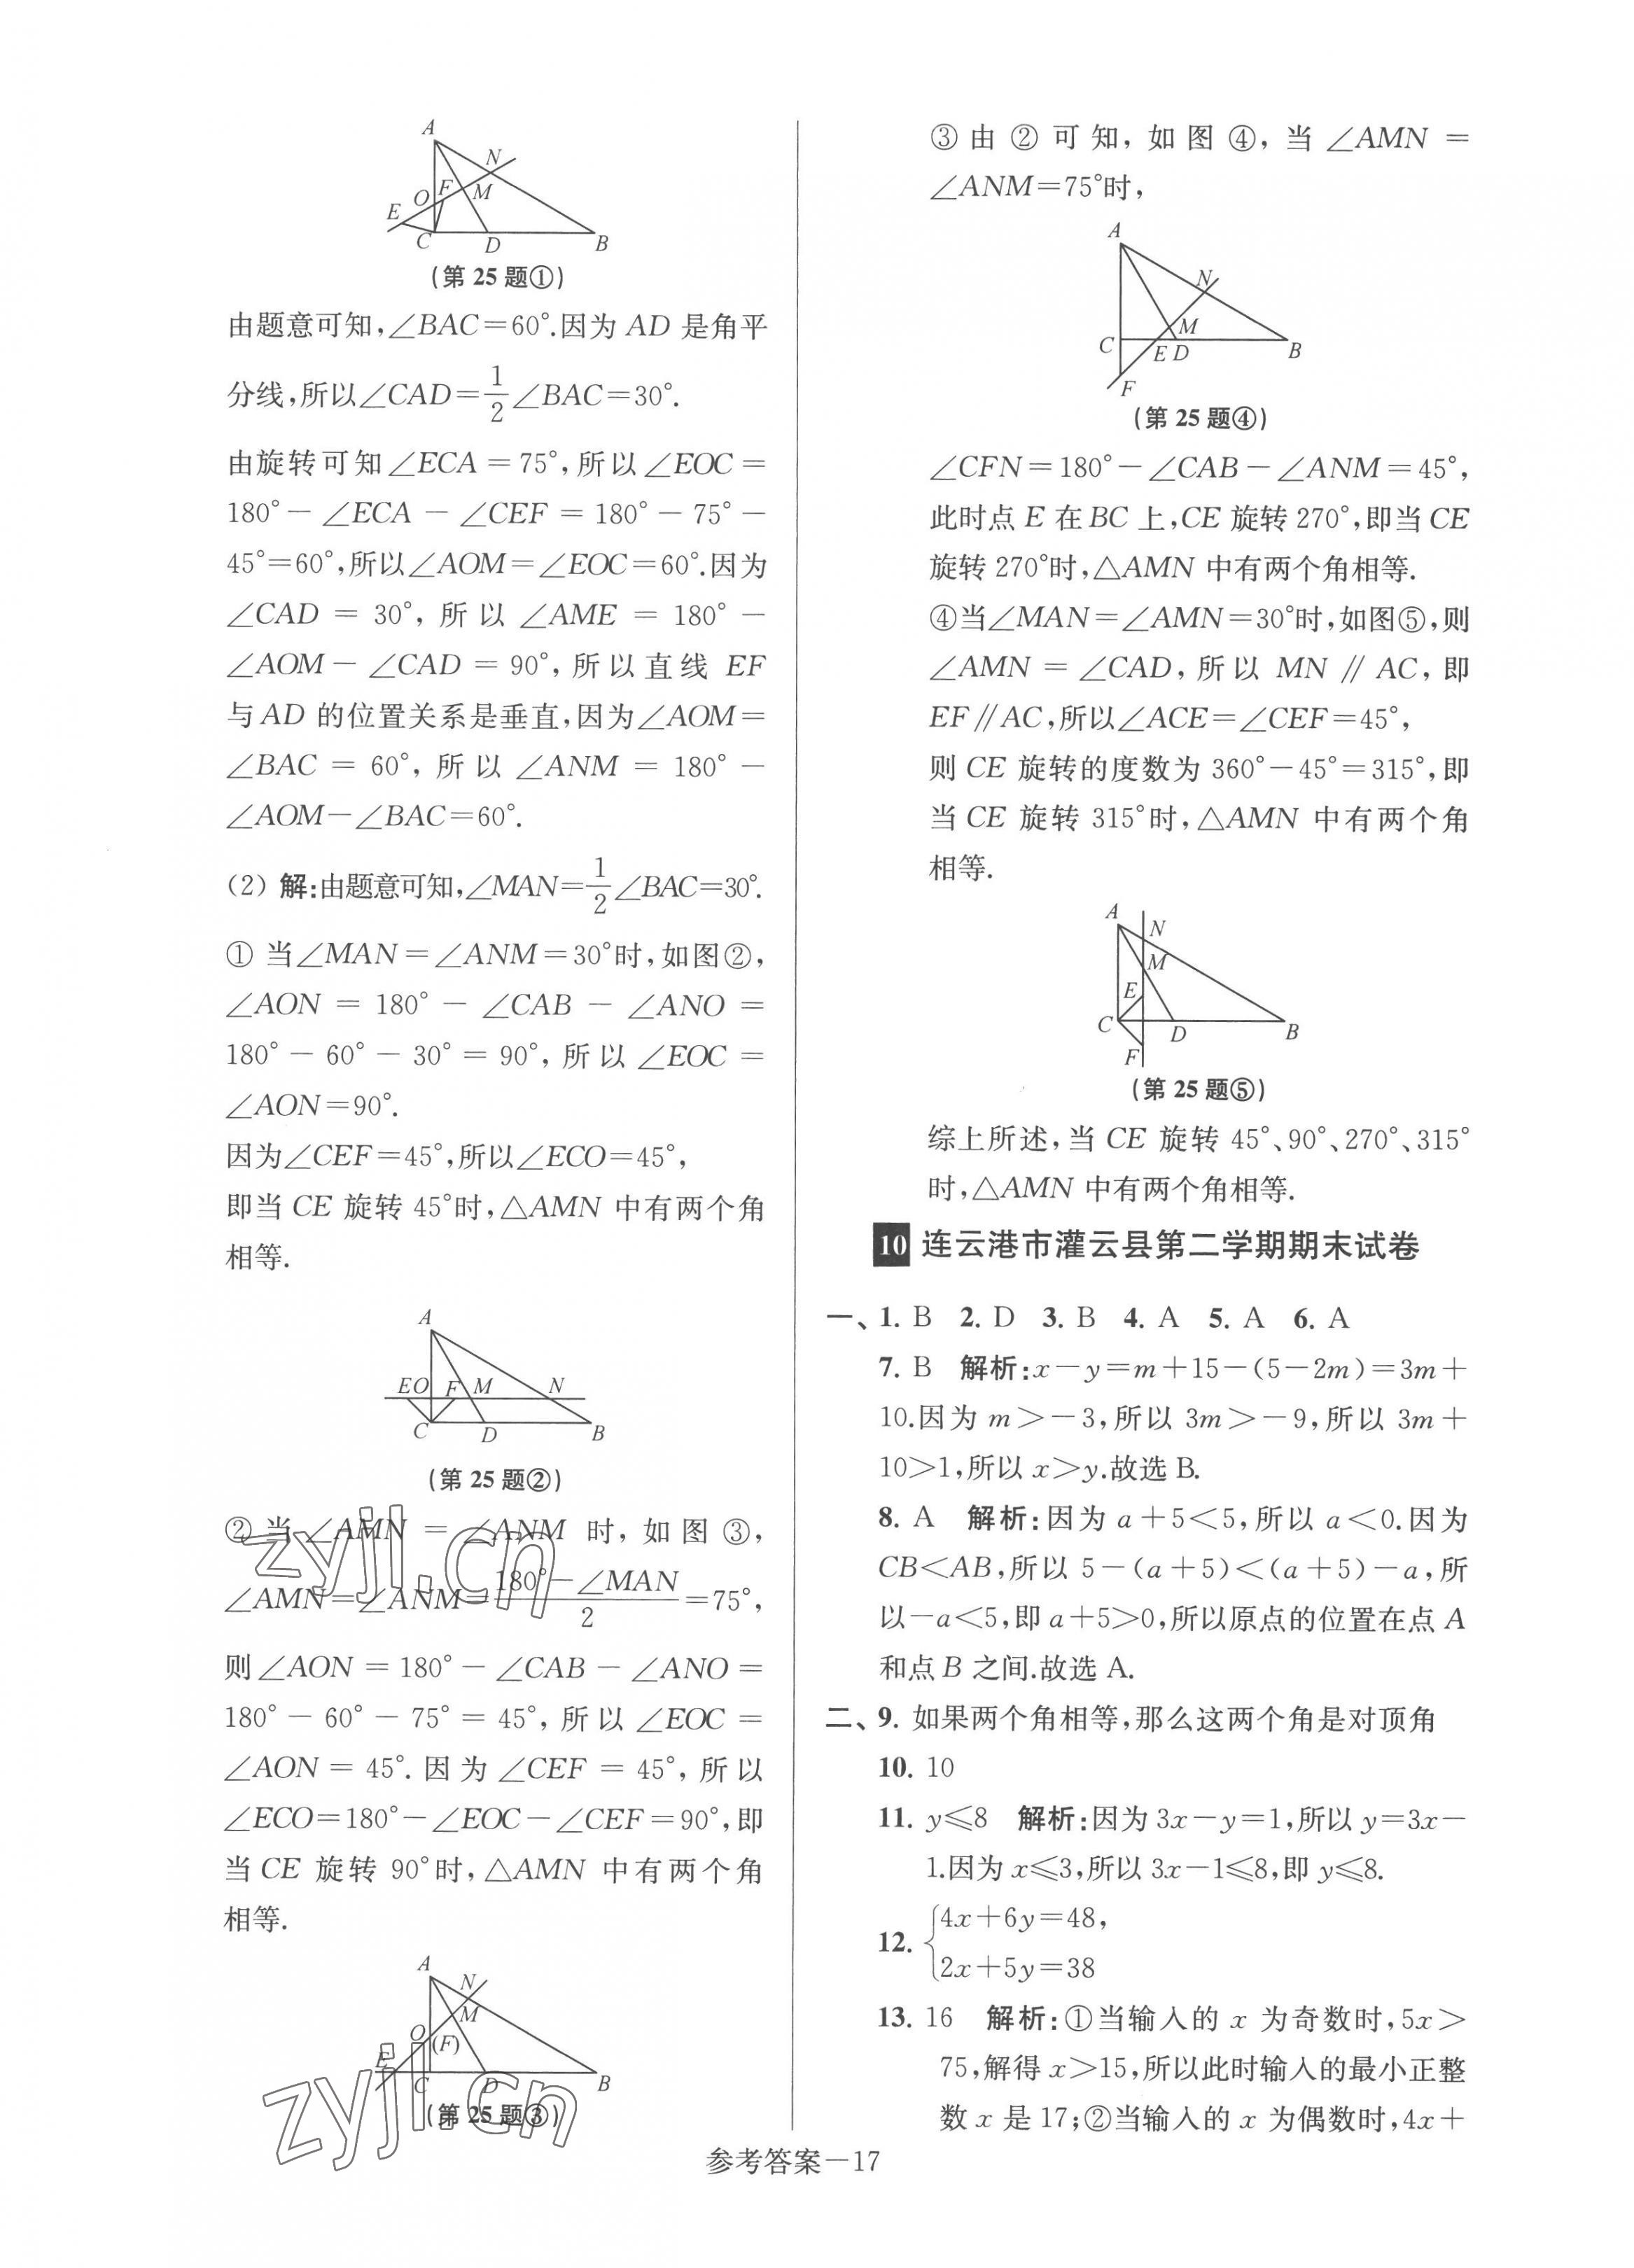 A
N
F
O
M
E
C
D
B
(第 25 题①)
由题意可知,∠BAC=60°.因为 AD 是角平
分线,所以∠CAD=1/2∠BAC=30°.
由旋转可知∠ECA=75°,所以∠EOC=
180°-∠ECA-∠CEF=180°-75°-
45°=60°,所以∠AOM=∠EOC=60°.因为
∠CAD=30°,所以∠AME=180°-
∠AOM-∠CAD=90°,所以直线 EF
与 AD 的位置关系是垂直,因为∠AOM=
∠BAC=60°,所以∠ANM=180°-
∠AOM-∠BAC=60°.
(2) 解:由题意可知,∠MAN=1/2∠BAC=30°.
① 当∠MAN=∠ANM=30°时,如图②,
∠AON=180°-∠CAB-∠ANO=
180°-60°-30°=90°,所以∠EOC=
∠AON=90°.
因为∠CEF=45°,所以∠ECO=45°,
即当 CE 旋转 45°时,△AMN 中有两个角
相等.
A
E O F M N
C
D
B
(第 25 题②)
② 当∠AMN=∠ANM 时,如图③,
∠AMN=∠ANM=(180°-∠MAN)/2=75°,
则∠AON=180°-∠CAB-∠ANO=
180°-60°-75°=45°,所以∠EOC=
∠AON=45°.因为∠CEF=45°,所以
∠ECO=180°-∠EOC-∠CEF=90°,即
当 CE 旋转 90°时,△AMN 中有两个角
相等.
A
N
M
O
(F)
E
C
D
B
(第 25 题③)
zyjl.cn
zyjl.cn
③由②可知,如图④,当∠AMN=
∠ANM=75°时,
A
N
M
C
E D
B
F
(第 25 题④)
∠CFN=180°-∠CAB-∠ANM=45°,
此时点 E 在 BC 上,CE 旋转 270°,即当 CE
旋转 270°时,△AMN 中有两个角相等.
④当∠MAN=∠AMN=30°时,如图⑤,则
∠AMN=∠CAD,所以 MN∥AC,即
EF∥AC,所以∠ACE=∠CEF=45°,
则 CE 旋转的度数为 360°-45°=315°,即
当 CE 旋转 315°时,△AMN 中有两个角
相等.
A
N
M
E
C
D
B
F
(第 25 题⑤)
综上所述,当 CE 旋转 45°、90°、270°、315°
时,△AMN 中有两个角相等.
10 连云港市灌云县第二学期期末试卷
一、1. B 2. D 3. B 4. A 5. A 6. A
7. B 解析:x-y=m+15-(5-2m)=3m+
10.因为 m>-3,所以 3m>-9,所以 3m+
10>1,所以 x>y.故选 B.
8. A 解析:因为 a+5<5,所以 a<0.因为
CB<AB,所以 5-(a+5)<(a+5)-a,所
以-a<5,即 a+5>0,所以原点的位置在点 A
和点 B 之间.故选 A.
二、9. 如果两个角相等,那么这两个角是对顶角
10. 10
11. y≤8 解析:因为 3x-y=1,所以 y=3x-
1.因为 x≤3,所以 3x-1≤8,即 y≤8.
12. {4x+6y=48,
2x+5y=38
13. 16 解析:①当输入的 x 为奇数时,5x>
75,解得 x>15,所以此时输入的最小正整
数 x 是 17;②当输入的 x 为偶数时,4x+
参考答案-17